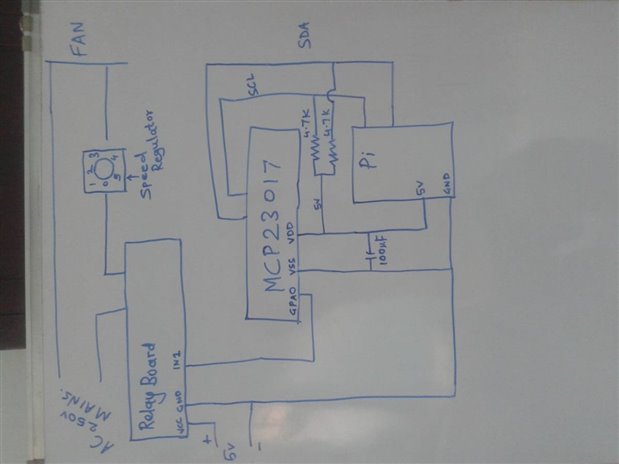 FAN
SDA
SCL
4.7K
4.7K
0 1 2 3 4 5
Speed
Regulator
MCP23017
Pi
5V
GND
5V
VDD
VSS
GPA0
100µF
Relay Board
IN2
GND
VCC
AC
250V
MAINS.
+
5V
-